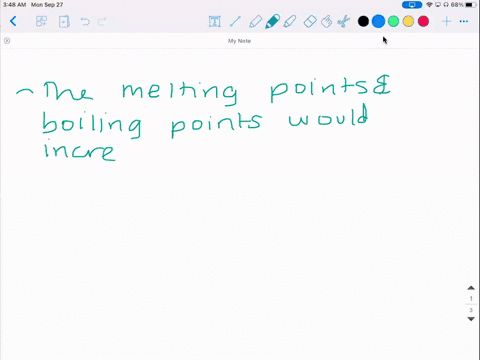 3:48 AM Mon Sep 27
68%
My Note
- The melting points &
boiling points would
incre
1
3